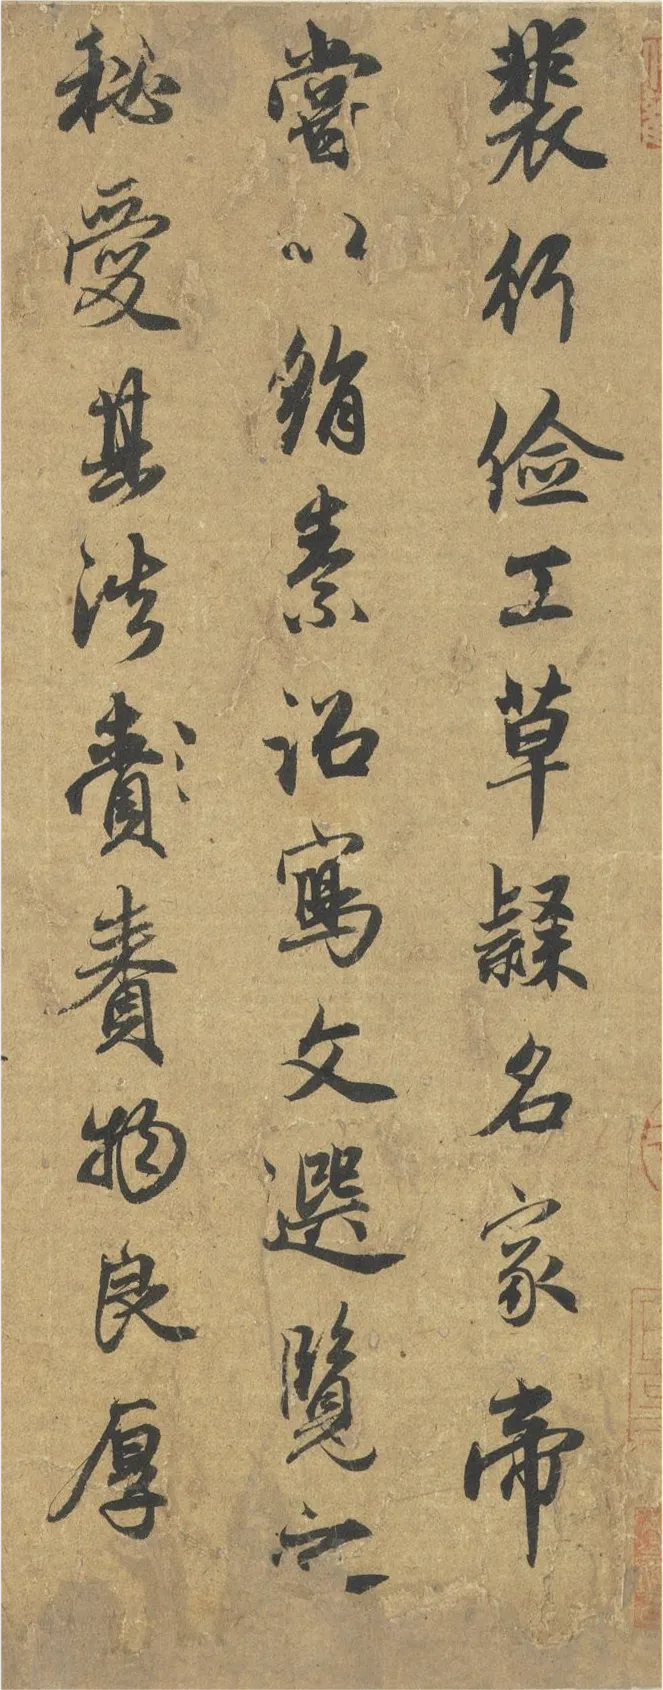 裴行儉工草隸名家帝
嘗以絹素詔寫文選覽之
祕愛其法賚賚物良厚